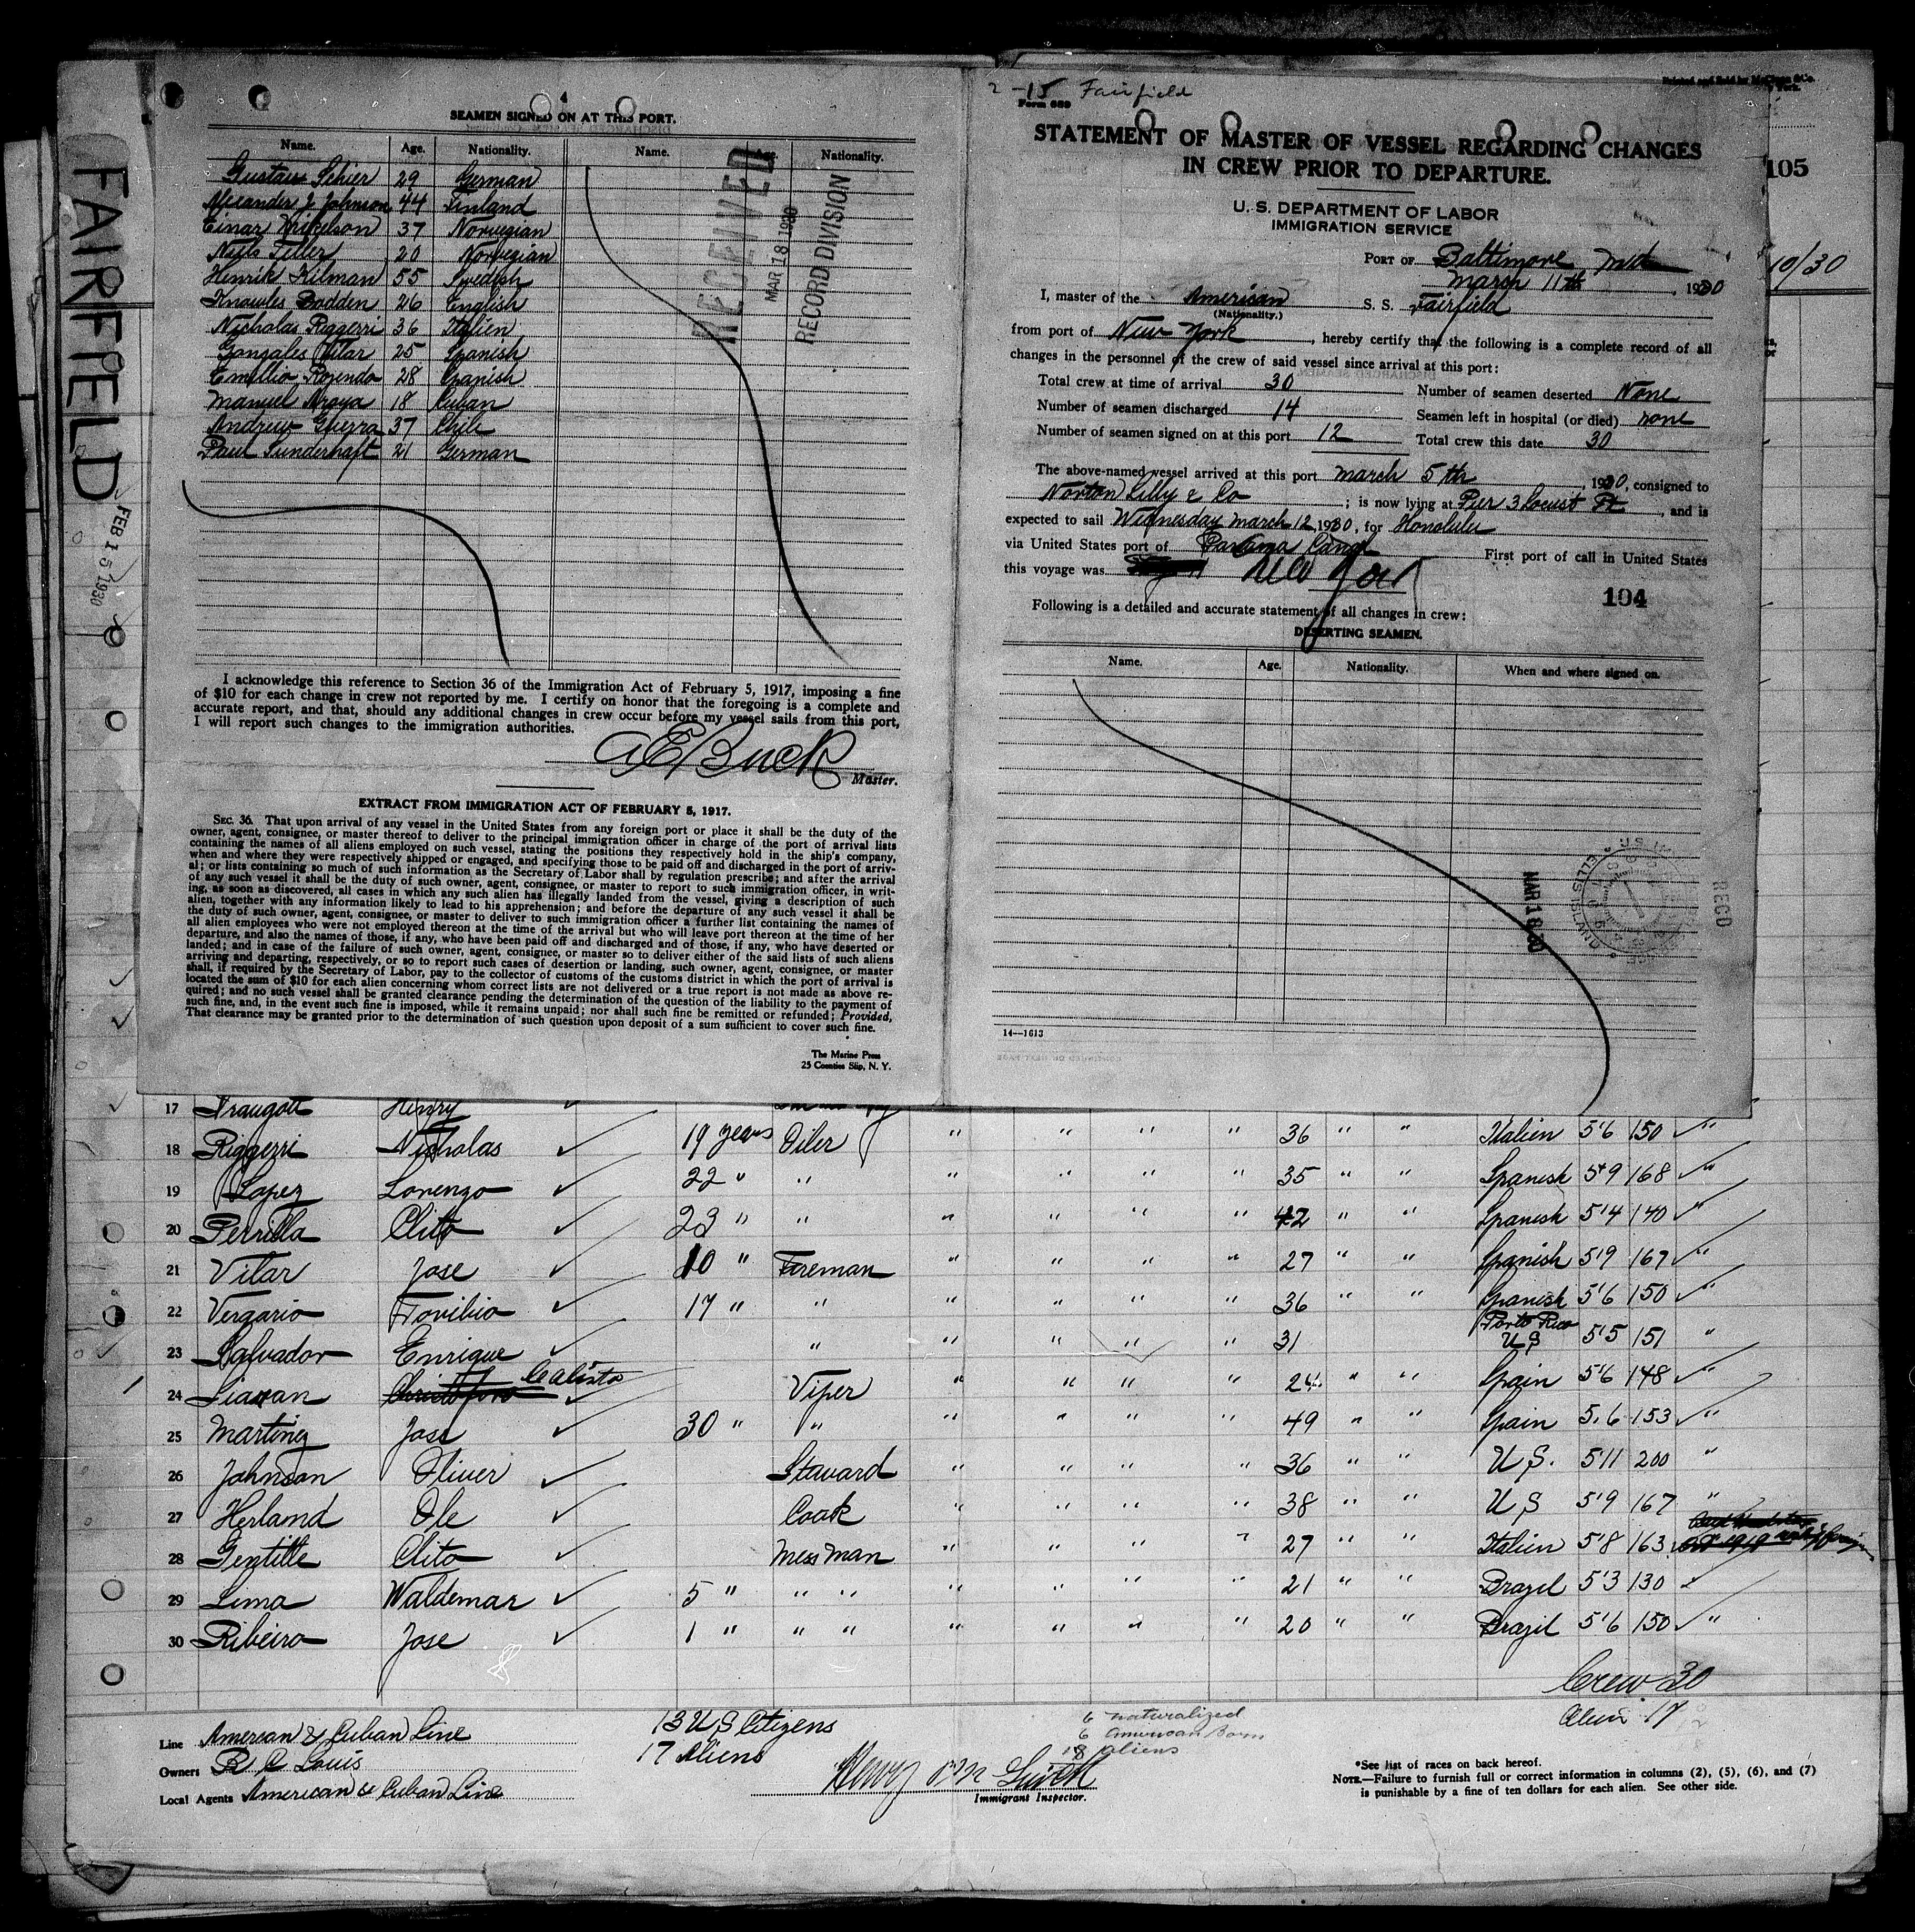 FAIRFIELD
FEB 15 1930
4
SEAMEN SIGNED ON AT THIS PORT.
Name. Age. Nationality. Name. Age. Nationality.
Gustav Schier 29 German
Alexander J Johnson 44 Finland
Einar Mikelson 37 Norwegian
Niels Teller 20 Norwegian
Henrik Hilman 55 Swedish
Knowles Bodden 26 English
Nicholas Riggerri 36 Italien
Gonzales Vilar 25 Spanish
Emillio Rozendo 28 Spanish
Manuel Araya 18 Cuban
Andrew Guerra 37 Chile
Paul Sunderhaft 21 German
RECEIVED
MAR 18 1930
RECORD DIVISION
I acknowledge this reference to Section 36 of the Immigration Act of February 5, 1917, imposing a fine
of $10 for each change in crew not reported by me. I certify on honor that the foregoing is a complete and
accurate report, and that, should any additional changes in crew occur before my vessel sails from this port,
I will report such changes to the immigration authorities.
A E Buck
Master.
EXTRACT FROM IMMIGRATION ACT OF FEBRUARY 5, 1917.
SEC. 36. That upon arrival of any vessel in the United States from any foreign port or place it shall be the duty of the
owner, agent, consignee, or master thereof to deliver to the principal immigration officer in charge of the port of arrival lists
containing the names of all aliens employed on such vessel, stating the positions they respectively hold in the ship's company,
when and where they were respectively shipped or engaged, and specifying those to be paid off and discharged in the port of arriv-
al; or lists containing so much of such information as the Secretary of Labor shall by regulation prescribe; and after the arrival
of any such vessel it shall be the duty of such owner, agent, consignee, or master to report to such immigration officer, in writ-
ing, as soon as discovered, all cases in which any such alien has illegally landed from the vessel, giving a description of such
alien, together with any information likely to lead to his apprehension; and before the departure of any such vessel it shall be
the duty of such owner, agent, consignee, or master to deliver to such immigration officer a further list containing the names of
all alien employees who were not employed thereon at the time of the arrival but who will leave port thereon at the time of her
departure, and also the names of those, if any, who have been paid off and discharged and of those, if any, who have deserted or
landed; and in case of the failure of such owner, agent, consignee, or master so to deliver either of the said lists of such aliens
arriving and departing, respectively, or so to report such cases of desertion or landing, such owner, agent, consignee, or master
shall, if required by the Secretary of Labor, pay to the collector of customs of the customs district in which the port of arrival is
located the sum of $10 for each alien concerning whom correct lists are not delivered or a true report is not made as above re-
quired; and no such vessel shall be granted clearance pending the determination of the question of the liability to the payment of
such fine, and, in the event such fine is imposed, while it remains unpaid; nor shall such fine be remitted or refunded; Provided,
That clearance may be granted prior to the determination of such question upon deposit of a sum sufficient to cover such fine.
The Marine Press
25 Coenties Slip, N. Y.
2 -15 Fairfield
Form 689
STATEMENT OF MASTER OF VESSEL REGARDING CHANGES
IN CREW PRIOR TO DEPARTURE.
U. S. DEPARTMENT OF LABOR
IMMIGRATION SERVICE
PORT OF Baltimore Md
March 11th, 1930
I, master of the American S. S. Fairfield
(Nationality.)
from port of New York, hereby certify that the following is a complete record of all
changes in the personnel of the crew of said vessel since arrival at this port:
Total crew at time of arrival 30 Number of seamen deserted None
Number of seamen discharged 14 Seamen left in hospital (or died) none
Number of seamen signed on at this port 12 Total crew this date 30
The above-named vessel arrived at this port March 5th, 1930, consigned to
Norton Lilly & Co; is now lying at Pier 3 Locust Pt, and is
expected to sail Wednesday March 12, 1930, for Honolulu
via United States port of Panama Canal First port of call in United States
this voyage was New York
104
Following is a detailed and accurate statement of all changes in crew:
DESERTING SEAMEN.
Name. Age. Nationality. When and where signed on.
MAR 18 30
RECD
14—1613
105
10/30
17 Traugott Henry
18 Riggerri Nicholas 19 years Oiler " " " " 36 " " Italien 5'6 150 "
19 Lopez Lorenzo 22 " " " " " " 35 " " Spanish 5'9 168 "
20 Perrilla Clito 23 " " " " " " 42 " " Spanish 5'4 140 "
21 Vilar Jose 10 " Fireman " " " " 27 " " Spanish 5'9 167 "
22 Vergario Tovibio 17 " " " " " " 36 " " Spanish 5'6 150 "
23 Salvador Enrique " " " " " 31 Porto Rico U S 5'5 151 "
24 Liavan Calisto Viper " " " " 24 " " Spain 5'6 148 "
25 Martinez Jose 30 " " " " " " 49 " " Spain 5.6 153 "
26 Johnson Oliver Steward " " " " 36 " " U.S. 5'11 200 "
27 Herland Ole Cook " " " " 38 " " U S 5'9 167 "
28 Gentille Clito Mess man " " " " 27 " " Italien 5'8 163
29 Lima Waldemar 5 " " " " " " " 21 " " Brazil 5'3 130
30 Ribeiro Jose 1 " " " " " " " 20 " " Brazil 5'6 150 "
Crew 30
Alien 17
Line American & Cuban Line
Owners R C Louis
Local Agents American & Cuban Line
13 U S Citizens
17 Aliens
6 naturalized
6 American Born
18 aliens
Immigrant Inspector.
*See list of races on back hereof.
NOTE.—Failure to furnish full or correct information in columns (2), (5), (6), and (7)
is punishable by a fine of ten dollars for each alien. See other side.